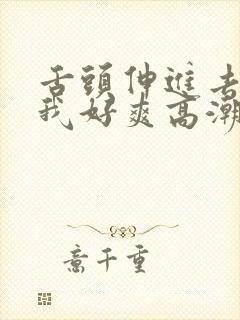 舌頭伸進去
我好爽高潮
意千重